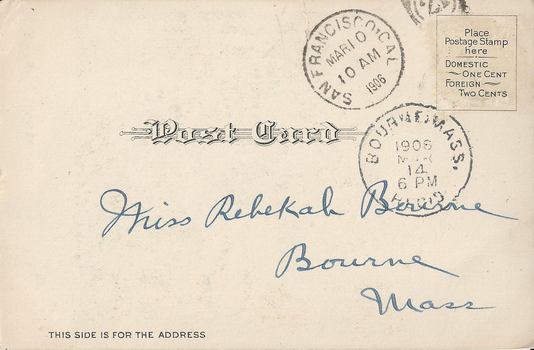 SAN FRANCISCO, CAL
MAR 10
10 AM
1906
Place
Postage Stamp
here
DOMESTIC
ONE CENT
FOREIGN
TWO CENTS
Post Card
BOURNE, MASS.
1906
MAR
14
6 PM
REC'D
Miss Rebekah Bourne
Bourne
Mass
THIS SIDE IS FOR THE ADDRESS